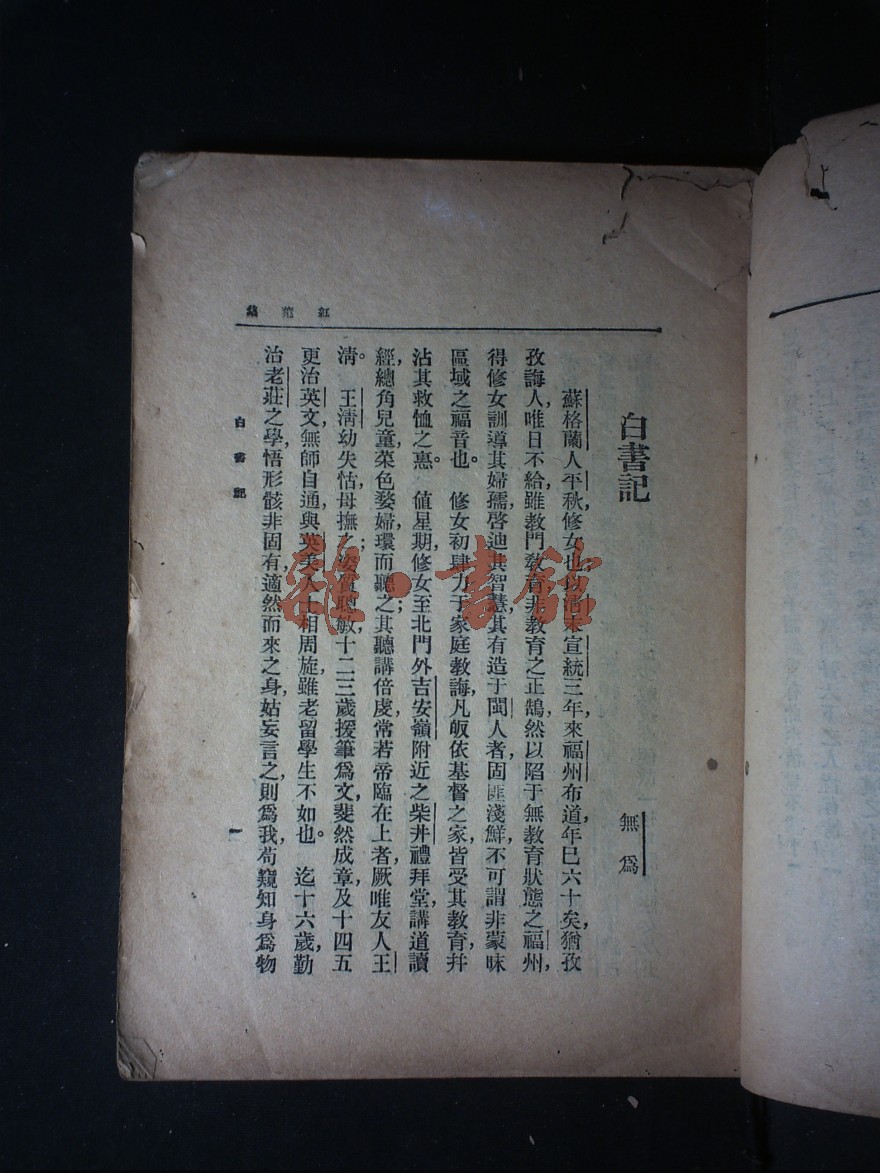 紅 集
白書記
無為
蘇格蘭人平秋修女也,以清末宣統三年來福州布道,年已六十矣,猶孜
孜誨人,唯日不給,雖教門教育,非教育之正鵠,然以陷于無教育狀態之福州,
得修女訓導其婦孺,啓迪其智慧,其有造于閩人者,固匪淺鮮,不可謂非蒙昧
區域之福音也。修女初肆力于家庭教誨,凡皈依基督之家,皆受其教育,幷
沾其救恤之惠。值星期,修女至北門外吉安嶺附近之柴井禮拜堂,講道讀
經,總角兒童,菜色婺婦,環而聽之;其聽講倍虔,常若帝臨在上者,厥唯友人王
清。王清幼失怙,母撫之;姿質聰敏,十二三歲,援筆為文,斐然成章,及十四五
更治英文,無師自通,與英美人士相周旋,雖老留學生不如也。迄十六歲,勤
治老莊之學,悟形骸非固有,適然而來之身,姑妄言之,則為我,苟窺知身為物
白書記
一
雜·書館